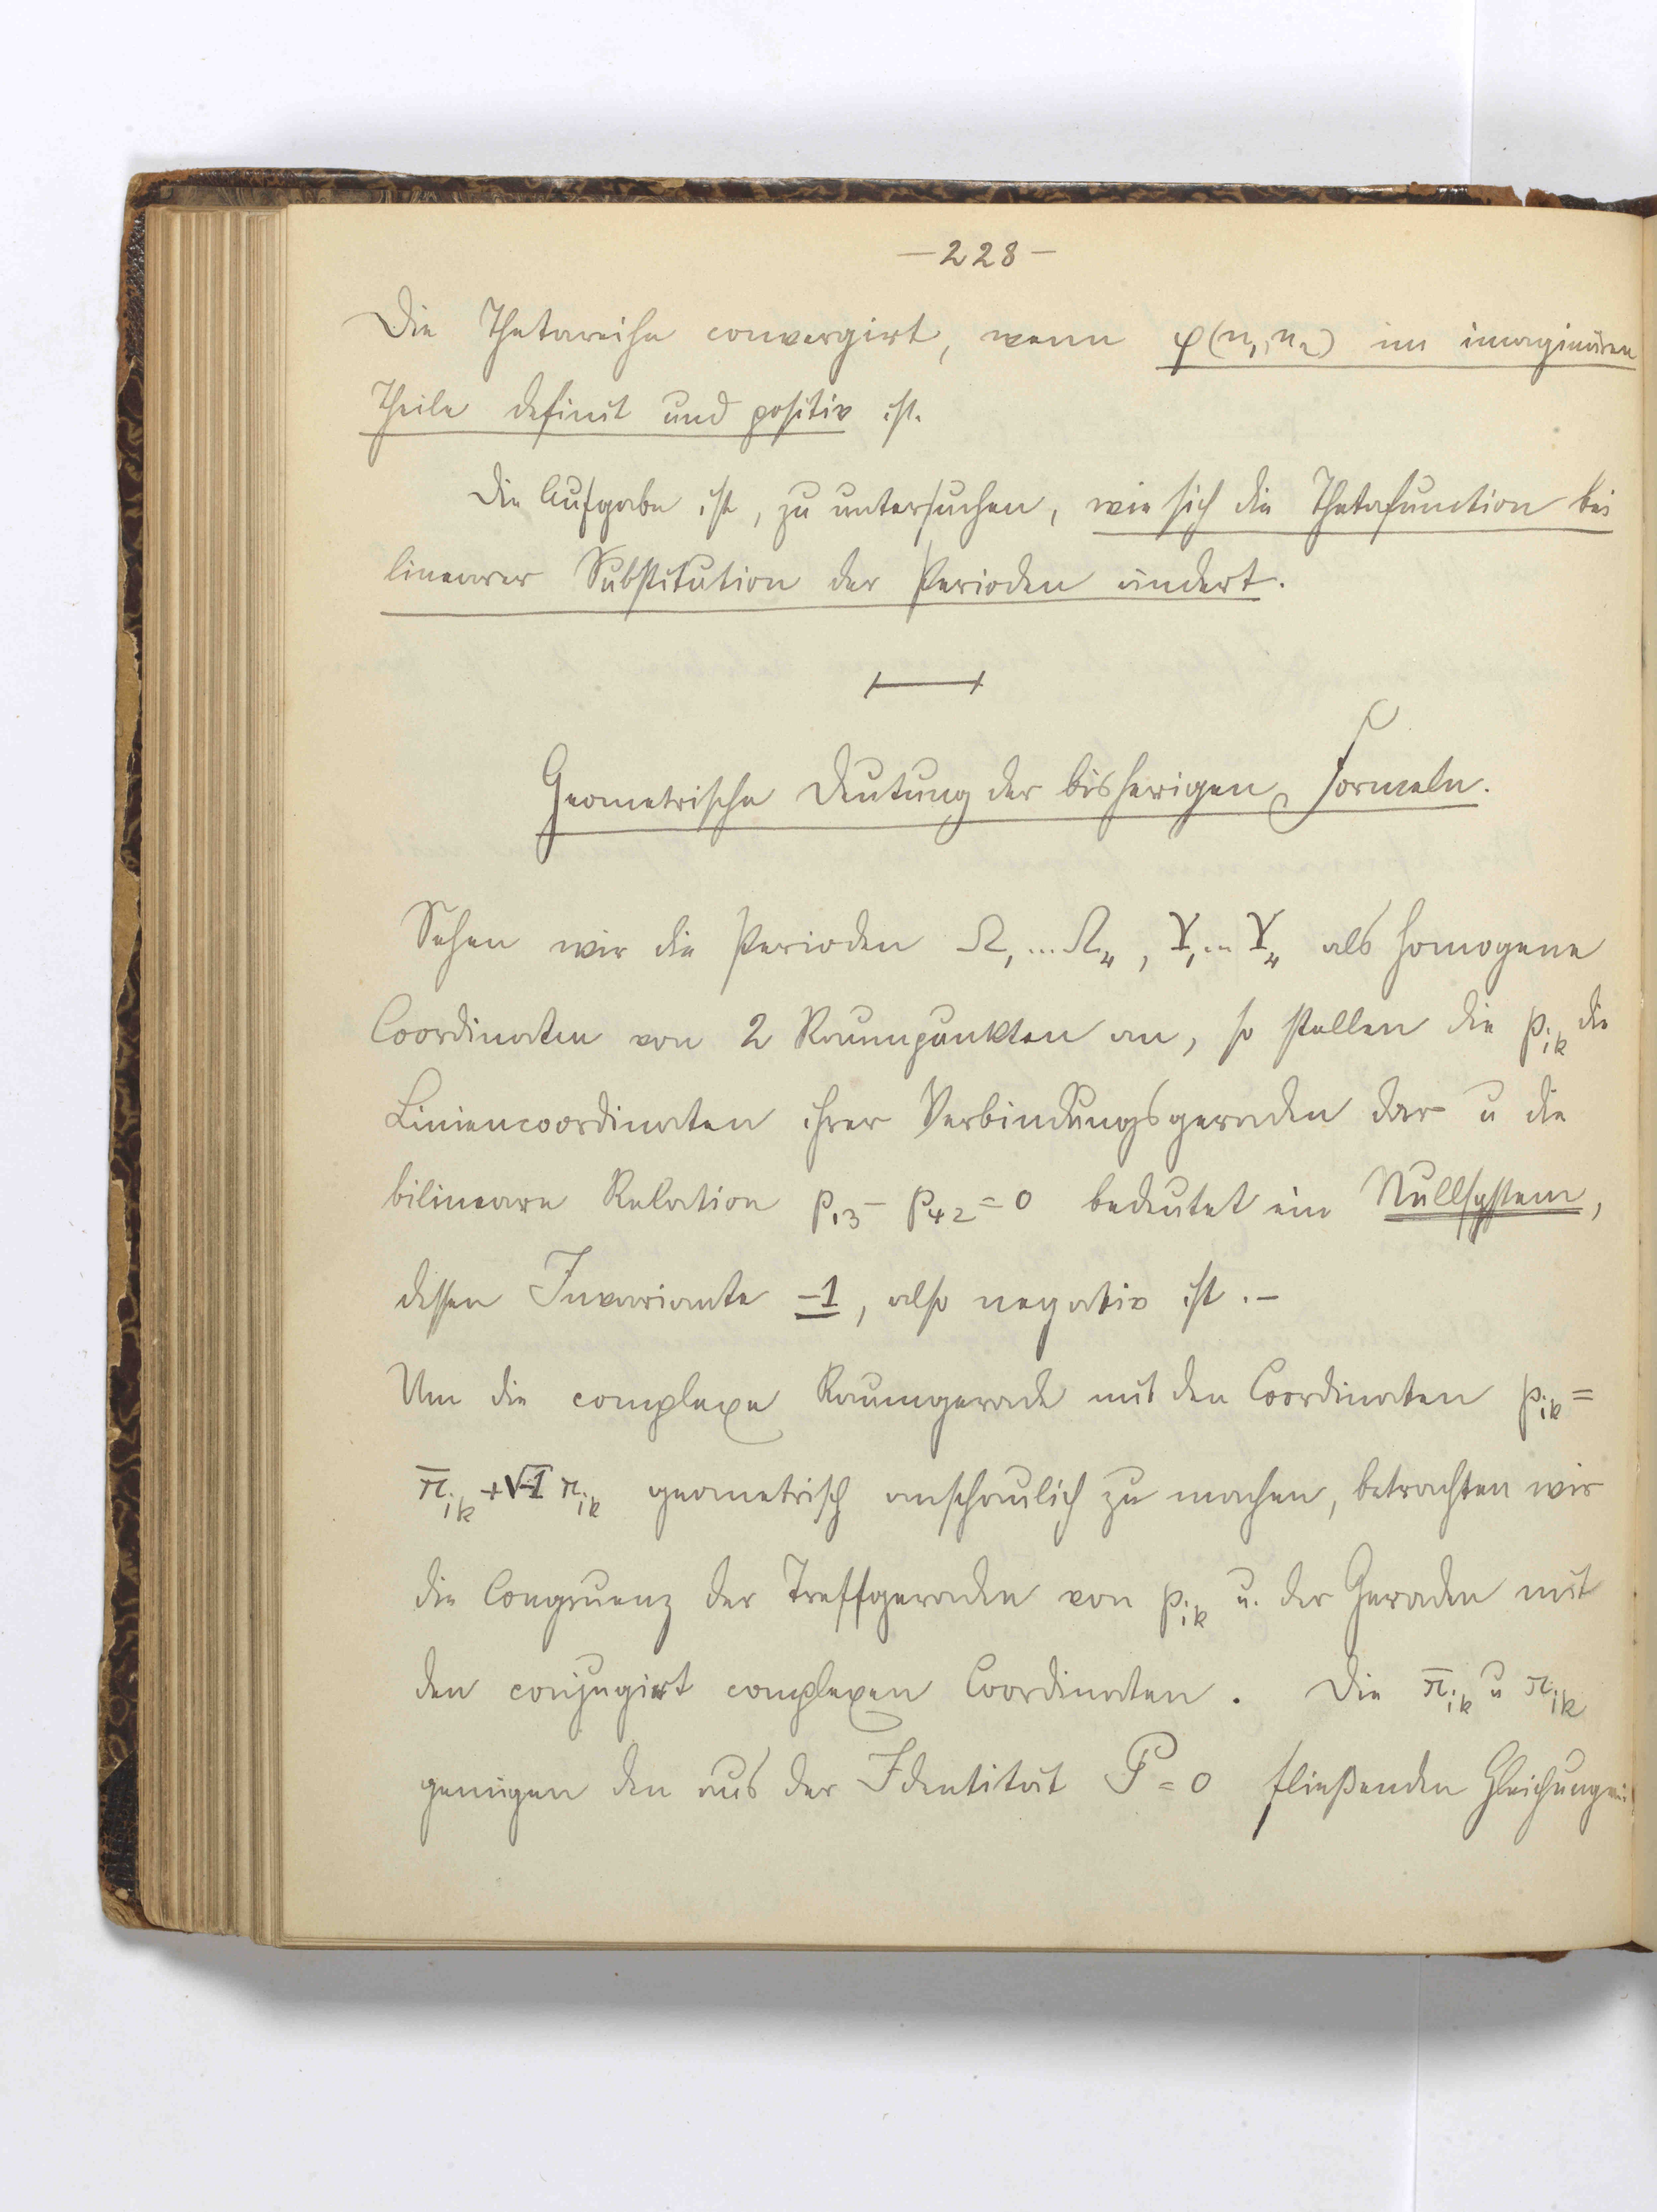 —228—
Die Thetareihe convergirt, wenn φ(n₁,n₂) im imaginären
Theile definit und positiv ist.
Die Aufgabe ist, zu untersuchen, wie sich die Thetafunction bei
linearer Substitution der Perioden ändert.
Geometrische Deutung der bisherigen Formeln.
Sehen wir die Perioden Ω₁...Ω₄, Υ₁...Υ₄ als homogene
Coordinaten von 2 Raumpunkten an, so stellen die p_ik die
Liniencoordinaten ihrer Verbindungsgeraden dar u die
bilineare Relation p₁₃ - p₄₂ = 0 bedeutet ein Nullsystem,
dessen Invariante -1, also negativ ist.—
Um die complexe Raumgerade mit den Coordinaten p_ik =
π̄_ik + √-1 π_ik geometrisch anschaulich zu machen, betrachten wir
die Congruenz der Treffgeraden von p_ik u. der Geraden mit
den conjugirt complexen Coordinaten. Die π̄_ik u π_ik
genügen den aus der Identität P = 0 fließenden Gleichungen